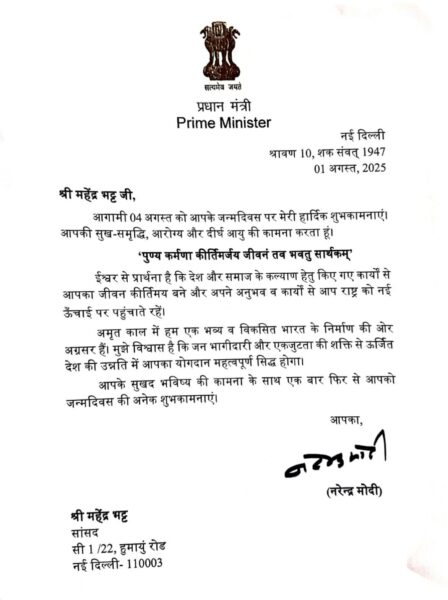 सत्यमेव जयते
प्रधान मंत्री
Prime Minister
नई दिल्ली
श्रावण 10, शक संवत् 1947
01 अगस्त, 2025
श्री महेंद्र भट्ट जी,
आगामी 04 अगस्त को आपके जन्मदिवस पर मेरी हार्दिक शुभकामनाएं।
आपकी सुख-समृद्धि, आरोग्य और दीर्घ आयु की कामना करता हूं।
‘पुण्य कर्मणा कीर्तिमर्जय जीवनं तव भवतु सार्थकम्’
ईश्वर से प्रार्थना है कि देश और समाज के कल्याण हेतु किए गए कार्यों से
आपका जीवन कीर्तिमय बने और अपने अनुभव व कार्यों से आप राष्ट्र को नई
ऊँचाई पर पहुंचाते रहें।
अमृत काल में हम एक भव्य व विकसित भारत के निर्माण की ओर
अग्रसर हैं। मुझे विश्वास है कि जन भागीदारी और एकजुटता की शक्ति से ऊर्जित
देश की उन्नति में आपका योगदान महत्वपूर्ण सिद्ध होगा।
आपके सुखद भविष्य की कामना के साथ एक बार फिर से आपको
जन्मदिवस की अनेक शुभकामनाएं।
आपका,
नरेन्द्र मोदी
(नरेन्द्र मोदी)
श्री महेंद्र भट्ट
सांसद
सी 1/22, हुमायुं रोड
नई दिल्ली- 110003